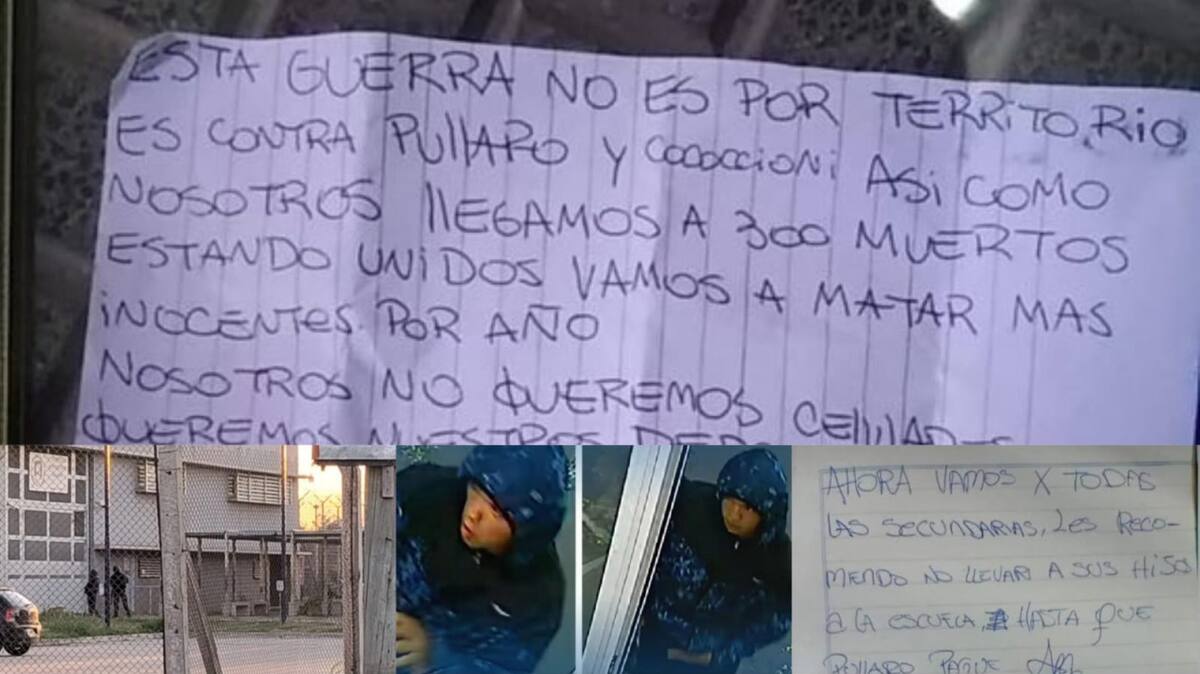 ESTA GUERRA NO ES POR TERRITORIO
ES CONTRA PULLARO Y COCOCCIONI ASI COMO
NOSOTROS LLEGAMOS A 300 MUERTOS
ESTANDO UNIDOS VAMOS A MATAR MAS
INOCENTES POR AÑO
NOSOTROS NO QUEREMOS CELULARES
QUEREMOS NUESTROS
AHORA VAMOS X TODAS
LAS SECUNDARIAS, LES RECO-
MENDO NO LLEVAR A SUS HIJOS
a LA ESCUELA, HASTA QUE
PULLARO PAGUE